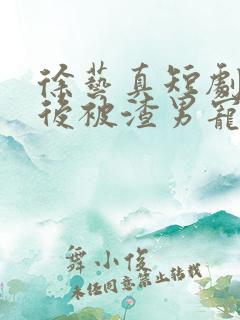 徐藝真短劇
後被渣男寵
舞小俊
未经同意禁止转载